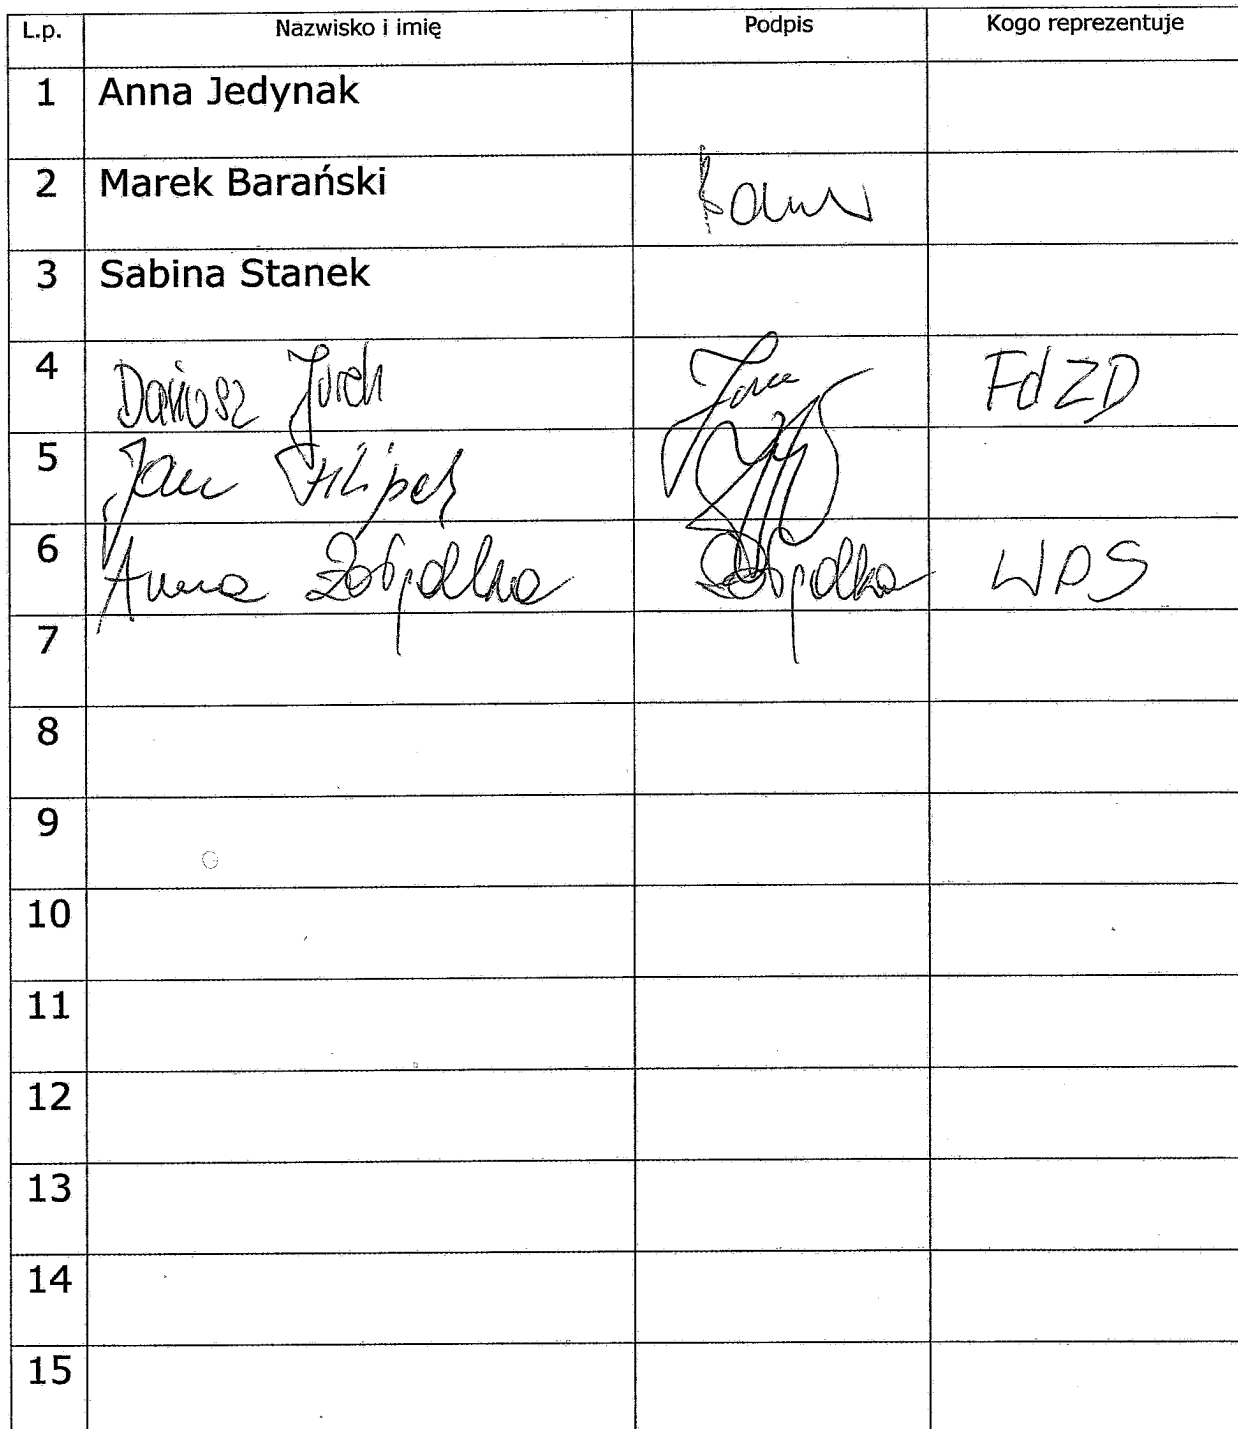 L.p. Nazwisko i imię Podpis Kogo reprezentuje
1 Anna Jedynak
2 Marek Barański
3 Sabina Stanek
4 Dariusz FdZD
5 Jan Filipek
6 Anna WPS
7
8
9
10
11
12
13
14
15